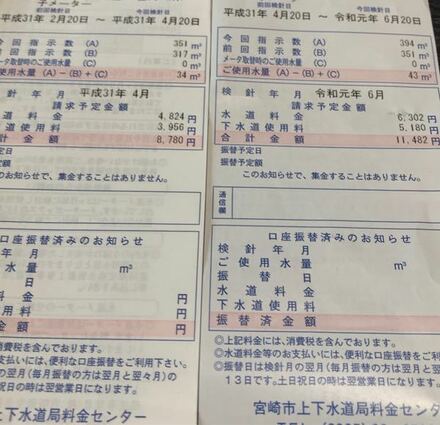 子メーター
前回検針日 今回検針日
平成31年 2月20日 ～ 平成31年 4月20日
今回指示数 (A) 351 m³
前回指示数 (B) 317 m³
メータ取替時のご使用水量 (C) 0 m³
使用水量 (A)－(B)＋(C) 34 m³
針年月 平成31年 4月
請求予定金額
道料金 4,824円
水道使用料 3,956円
計金額 8,780円
予定日
予定額
このお知らせで、集金することはありません。
口座振替済みのお知らせ
針年月
水量 m³
日
料金 円
使用料 円
金額 円
は、消費税を含んでおります。
支払いには、便利な口座振替をご利用下さい。
の翌月(毎月振替の方は翌月と翌々月)の
祝日の時は翌営業日になります。
上下水道局料金センター
前回検針日 今回検針日
平成31年 4月20日 ～ 令和元年 6月20日
今回指示数 (A) 394 m³
前回指示数 (B) 351 m³
メータ取替時のご使用水量 (C) 0 m³
ご使用水量 (A)－(B)＋(C) 43 m³
検針年月 令和元年 6月
請求予定金額
水道料金 6,302円
下水道使用料 5,180円
合計金額 11,482円
振替予定日
振替予定額
このお知らせで、集金することはありません。
通信欄
口座振替済みのお知らせ
検針年月
ご使用水量 m³
振替日
水道料金 円
下水道使用料 円
振替済金額 円
◎上記料金には、消費税を含んでおります。
◎水道料金等のお支払いには、便利な口座振替を
◎振替日は検針月の翌月(毎月振替の方は翌月と
13日です。土日祝日の時は翌営業日になります。
宮崎市上下水道局料金センター